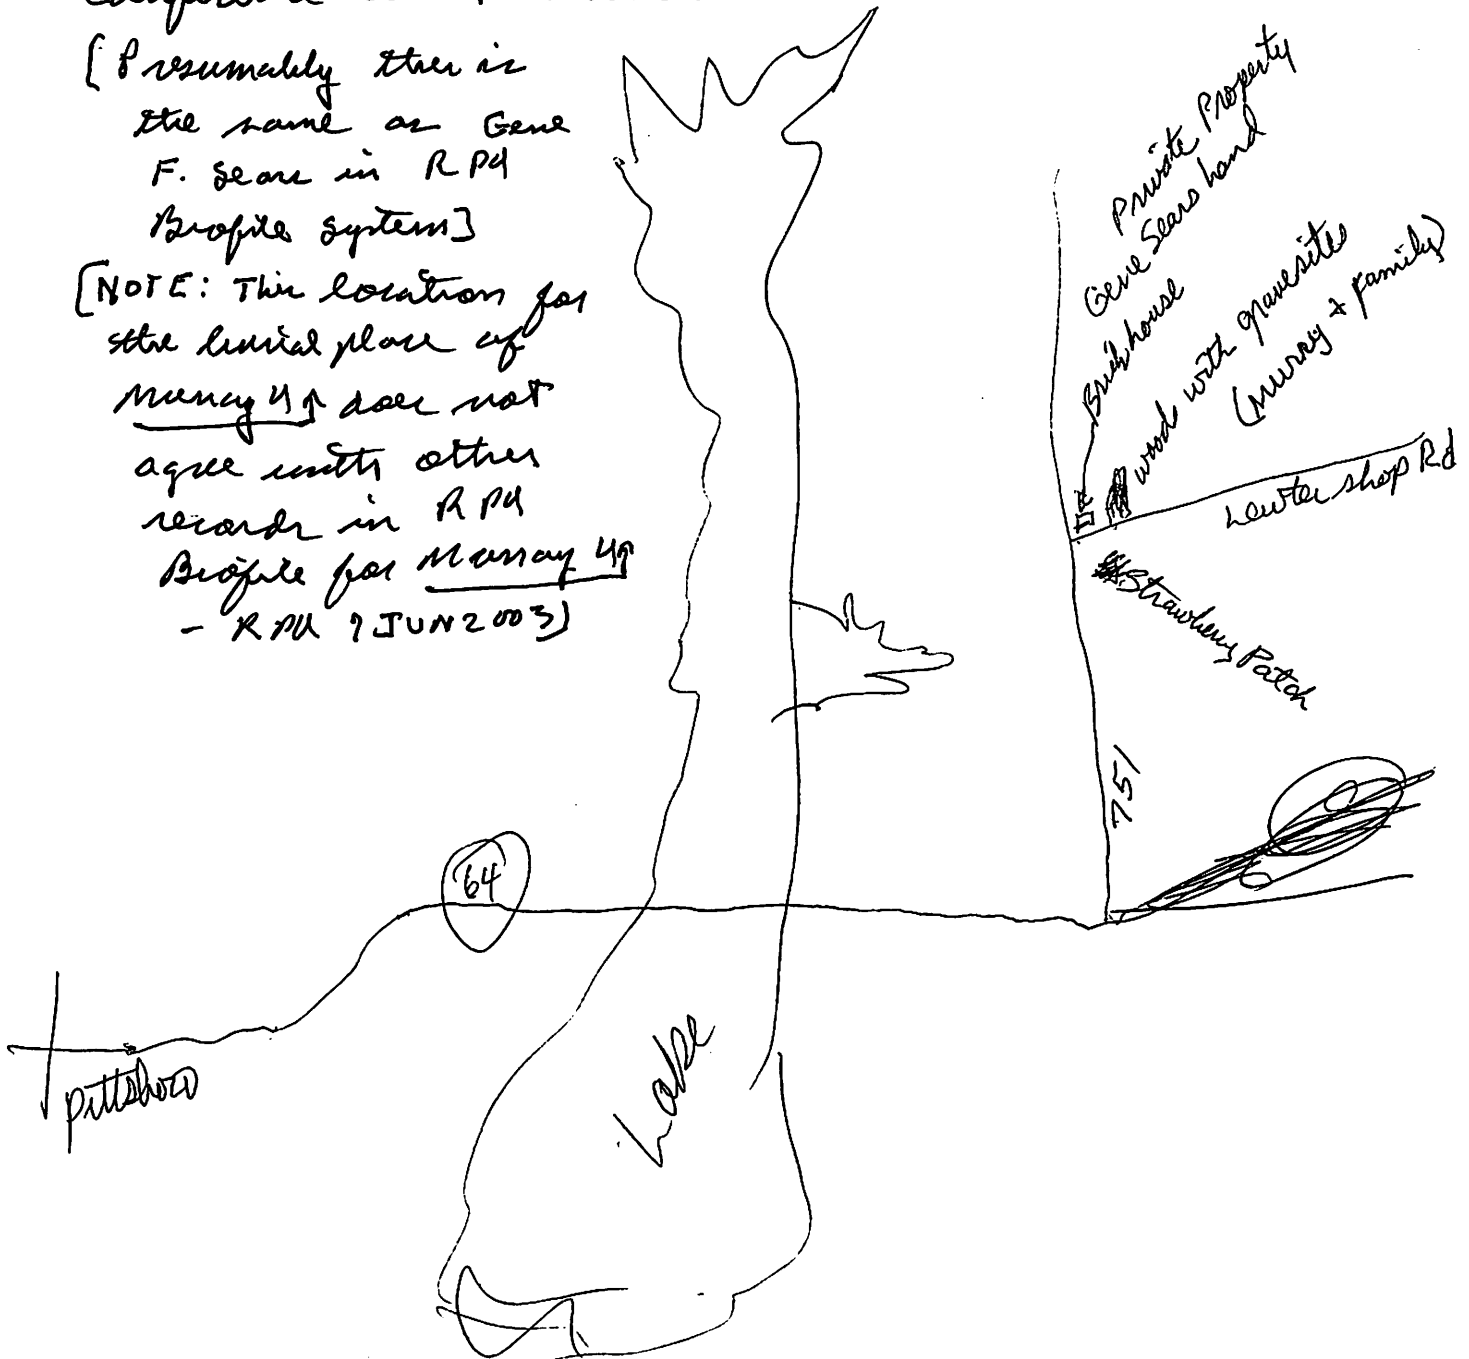 [Presumably this is
the same as Gene
F. Sears in RPH
Biofile system]
[NOTE: This location for
the burial place of
Murray 4↑ does not
agree with other
records in RPH
Biofile for Murray 4↑
- RPH 7 JUN 2003]
Private Property
Gene Sears land
Brick house
wood with gravesites
(Murray & family)
Lewter Shop Rd
Strawberry Patch
751
64
Pittsboro
Lake